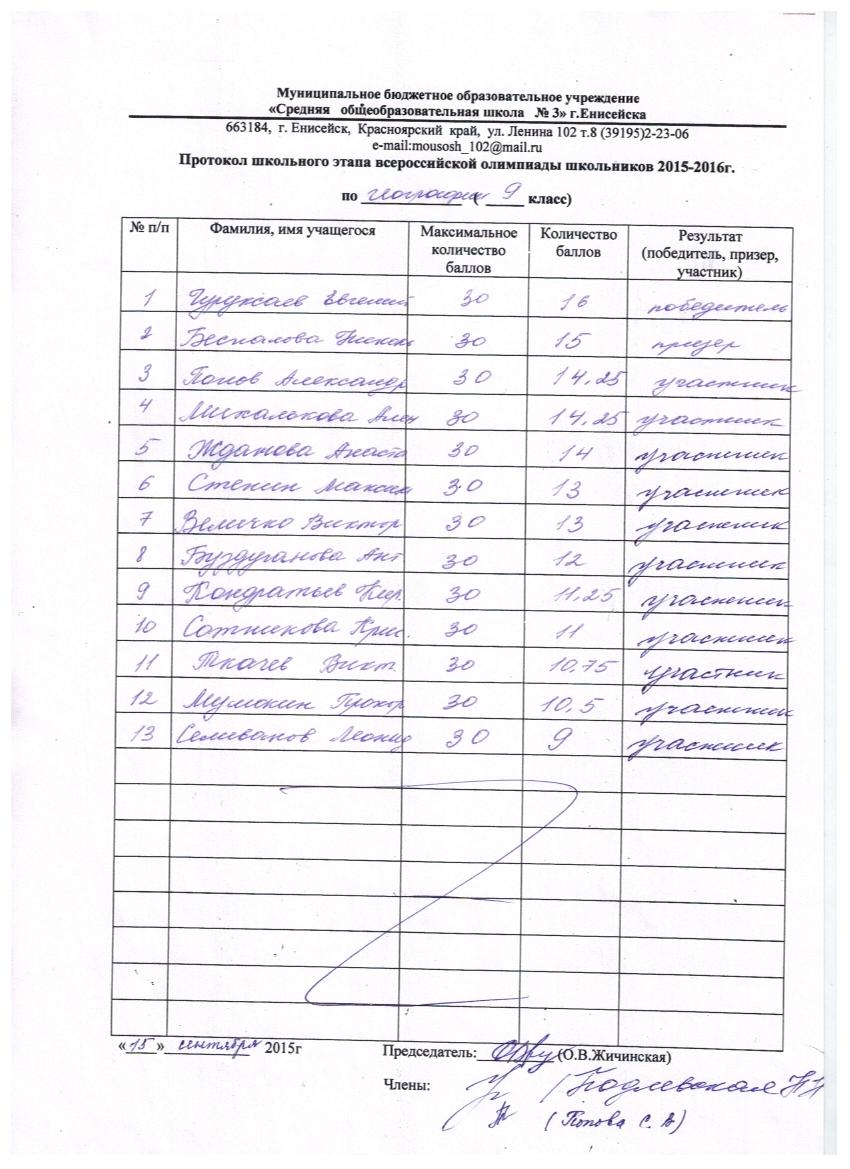 Муниципальное бюджетное образовательное учреждение
«Средняя общеобразовательная школа № 3» г.Енисейска
663184, г. Енисейск, Красноярский край, ул. Ленина 102 т.8 (39195)2-23-06
e-mail:mousosh_102@mail.ru
Протокол школьного этапа всероссийской олимпиады школьников 2015-2016г.
по географии ( 9 класс)
№ п/п Фамилия, имя учащегося Максимальное количество баллов Количество баллов Результат (победитель, призер, участник)
1 Евгений 30 16 победитель
2 Беспалова 30 15 призер
3 Попов Александр 30 14,25 участник
4 Микалькова Ален 30 14,25 участник
5 Жданова Анаста 30 14 участник
6 Стенин Максим 30 13 участник
7 Величко Виктор 30 13 участник
8 Бурдуганова Ант 30 12 участник
9 Кондратьев Кир 30 11,25 участник
10 Сотникова Крис. 30 11 участник
11 Ткачев Викт. 30 10,75 участник
12 Прохор 30 10,5 участник
13 Селиванов Леонид 30 9 участник
«15» сентября 2015г Председатель: (О.В.Жичинская)
Члены: (Подлевская Н Н
(Попова С. В)